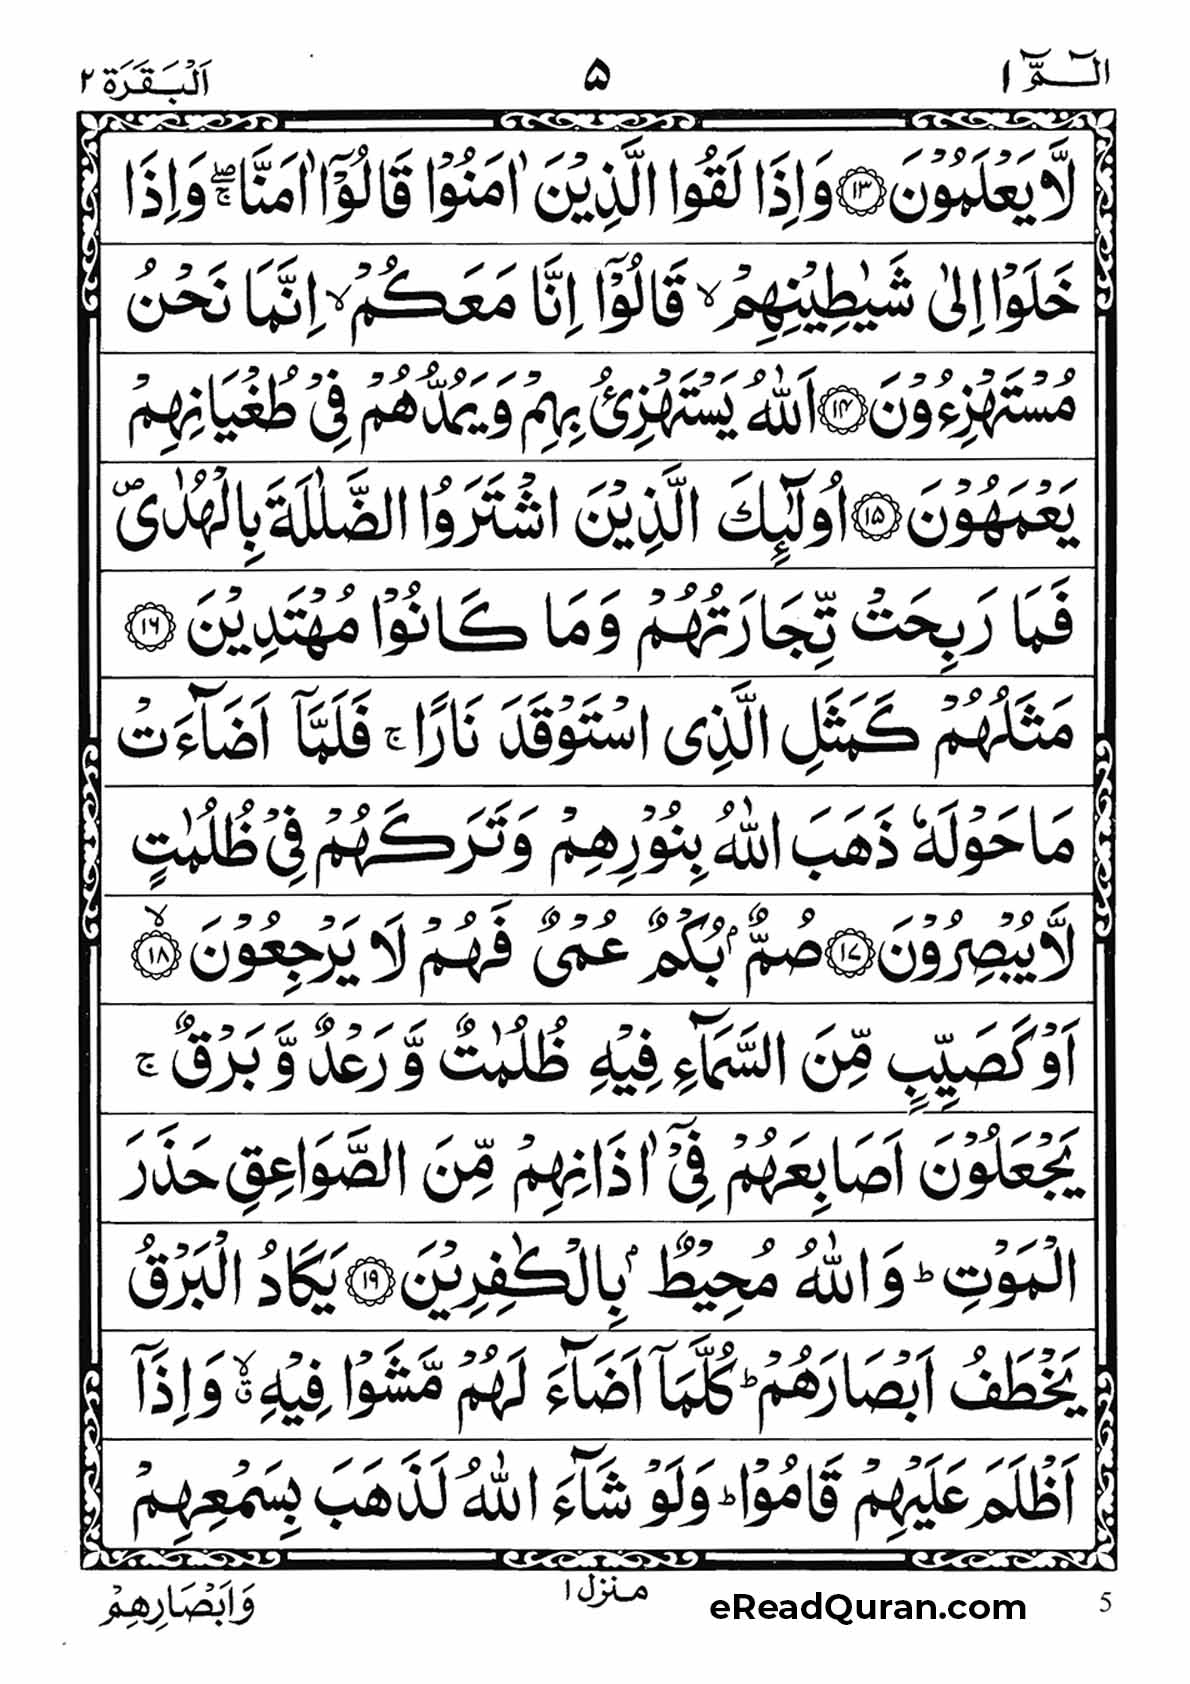 الٓمّٓ ۱
۵
اَلْبَقَرَة ۲
لَّا يَعْلَمُوْنَ ۱۳ وَاِذَا لَقُوا الَّذِيْنَ اٰمَنُوْا قَالُوْٓا اٰمَنَّا ۖۚ وَاِذَا
خَلَوْا اِلٰى شَيٰطِيْنِهِمْ ۙ قَالُوْٓا اِنَّا مَعَكُمْ ۙ اِنَّمَا نَحْنُ
مُسْتَهْزِءُوْنَ ۱۴ اَللّٰهُ يَسْتَهْزِئُ بِهِمْ وَيَمُدُّهُمْ فِيْ طُغْيَانِهِمْ
يَعْمَهُوْنَ ۱۵ اُولٰٓئِكَ الَّذِيْنَ اشْتَرَوُا الضَّلٰلَةَ بِالْهُدٰى ۪
فَمَا رَبِحَتْ تِّجَارَتُهُمْ وَمَا كَانُوْا مُهْتَدِيْنَ ۱۶
مَثَلُهُمْ كَمَثَلِ الَّذِى اسْتَوْقَدَ نَارًا ۚ فَلَمَّآ اَضَآءَتْ
مَا حَوْلَهٗ ذَهَبَ اللّٰهُ بِنُوْرِهِمْ وَتَرَكَهُمْ فِيْ ظُلُمٰتٍ
لَّا يُبْصِرُوْنَ ۱۷ صُمٌّۢ بُكْمٌ عُمْىٌ فَهُمْ لَا يَرْجِعُوْنَ ۙ ۱۸
اَوْ كَصَيِّبٍ مِّنَ السَّمَآءِ فِيْهِ ظُلُمٰتٌ وَّرَعْدٌ وَّبَرْقٌ ۚ
يَجْعَلُوْنَ اَصَابِعَهُمْ فِيْٓ اٰذَانِهِمْ مِّنَ الصَّوَاعِقِ حَذَرَ
الْمَوْتِ ؕ وَاللّٰهُ مُحِيْطٌۢ بِالْكٰفِرِيْنَ ۱۹ يَكَادُ الْبَرْقُ
يَخْطَفُ اَبْصَارَهُمْ ؕ كُلَّمَآ اَضَآءَ لَهُمْ مَّشَوْا فِيْهِ ۙۗ وَاِذَآ
اَظْلَمَ عَلَيْهِمْ قَامُوْا ؕ وَلَوْ شَآءَ اللّٰهُ لَذَهَبَ بِسَمْعِهِمْ
منزل ۱
وَاَبْصَارِهِمْ
eReadQuran.com
5